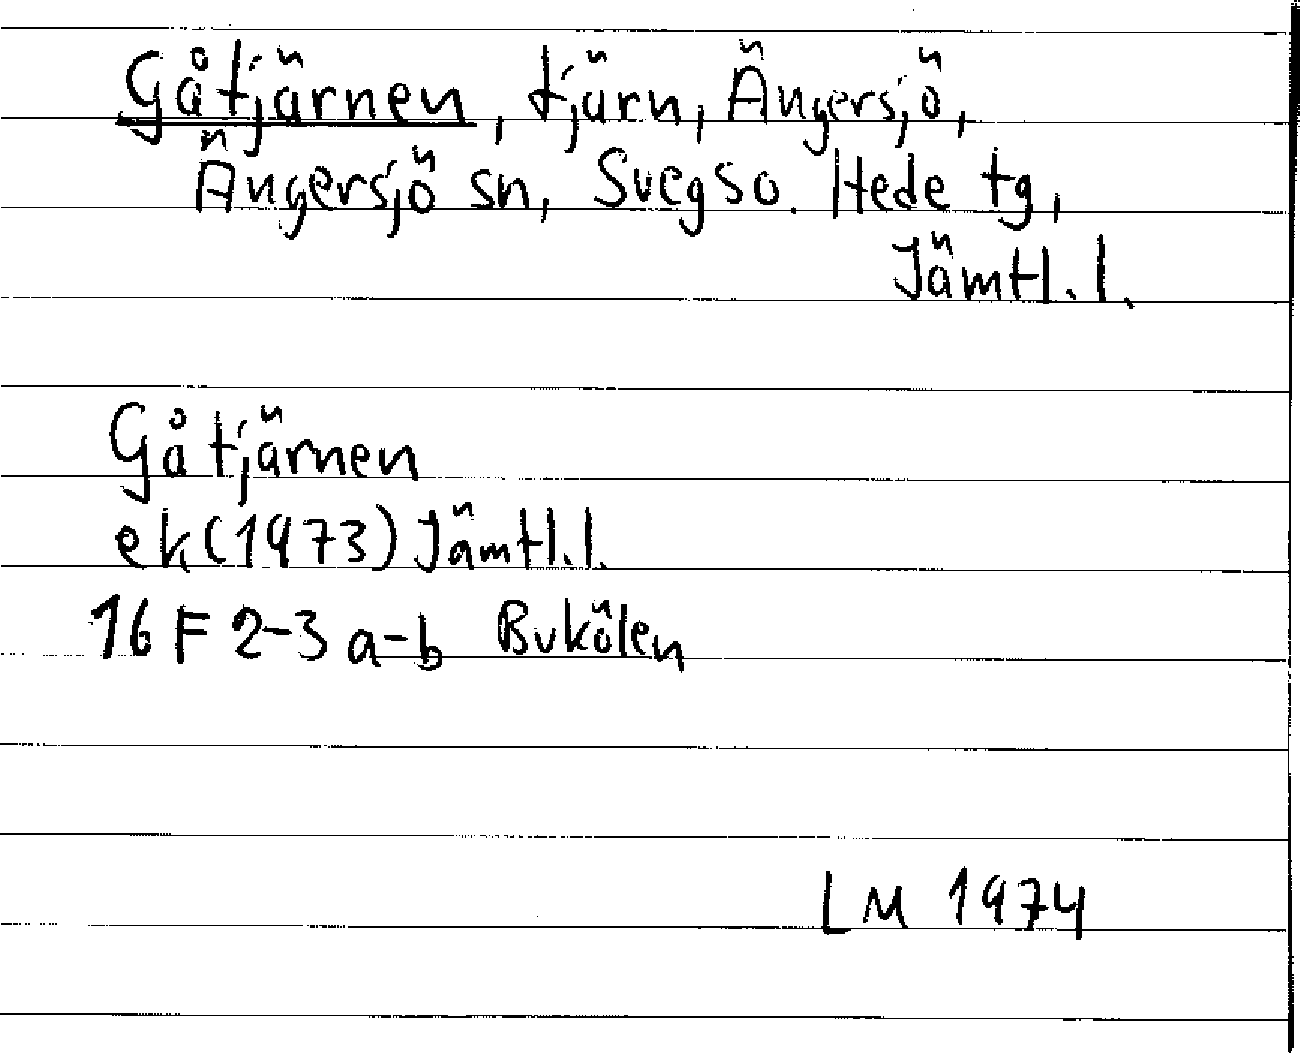 Gåtjärnen, tjärn, Ängersjö,
Ängersjö sn, Svegs o. Hede tg,
Jämtl. l.
Gåtjärnen
ek (1973) Jämtl. l.
16 F 2-3 a-b Bukölen
LM 1974